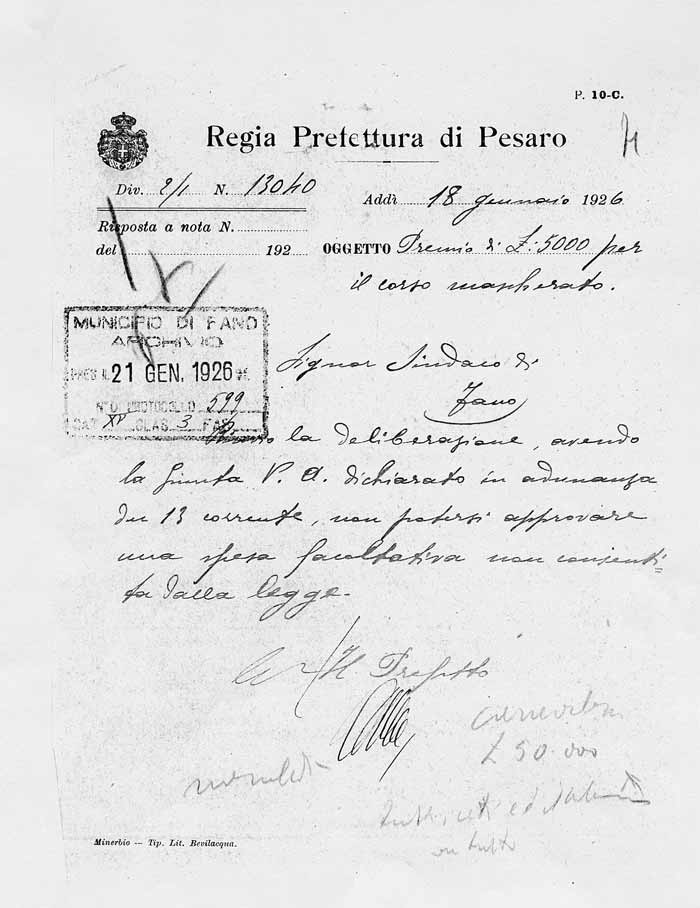 P. 10-C.
Regia Prefettura di Pesaro
Div. 2/1 N. 13040
Addì 18 gennaio 1926
Risposta a nota N.
del 192
OGGETTO Premio di £: 5000 per
il corso mascherato.
MUNICIPIO DI FANO
ARCHIVIO
PRES. IL 21 GEN. 1926
N° D PROTOCOLLO 599
CAT XV CLAS. 3 FAS
Signor Sindaco di
Fano
la deliberazione, avendo
la Giunta P. A. dichiarato in adunanza
del 13 corrente, non potersi approvare
una spesa facoltativa non consenti-
ta dalla legge.
Il Prefetto
£ 50.000
Minerbio — Tip. Lit. Bevilacqua.